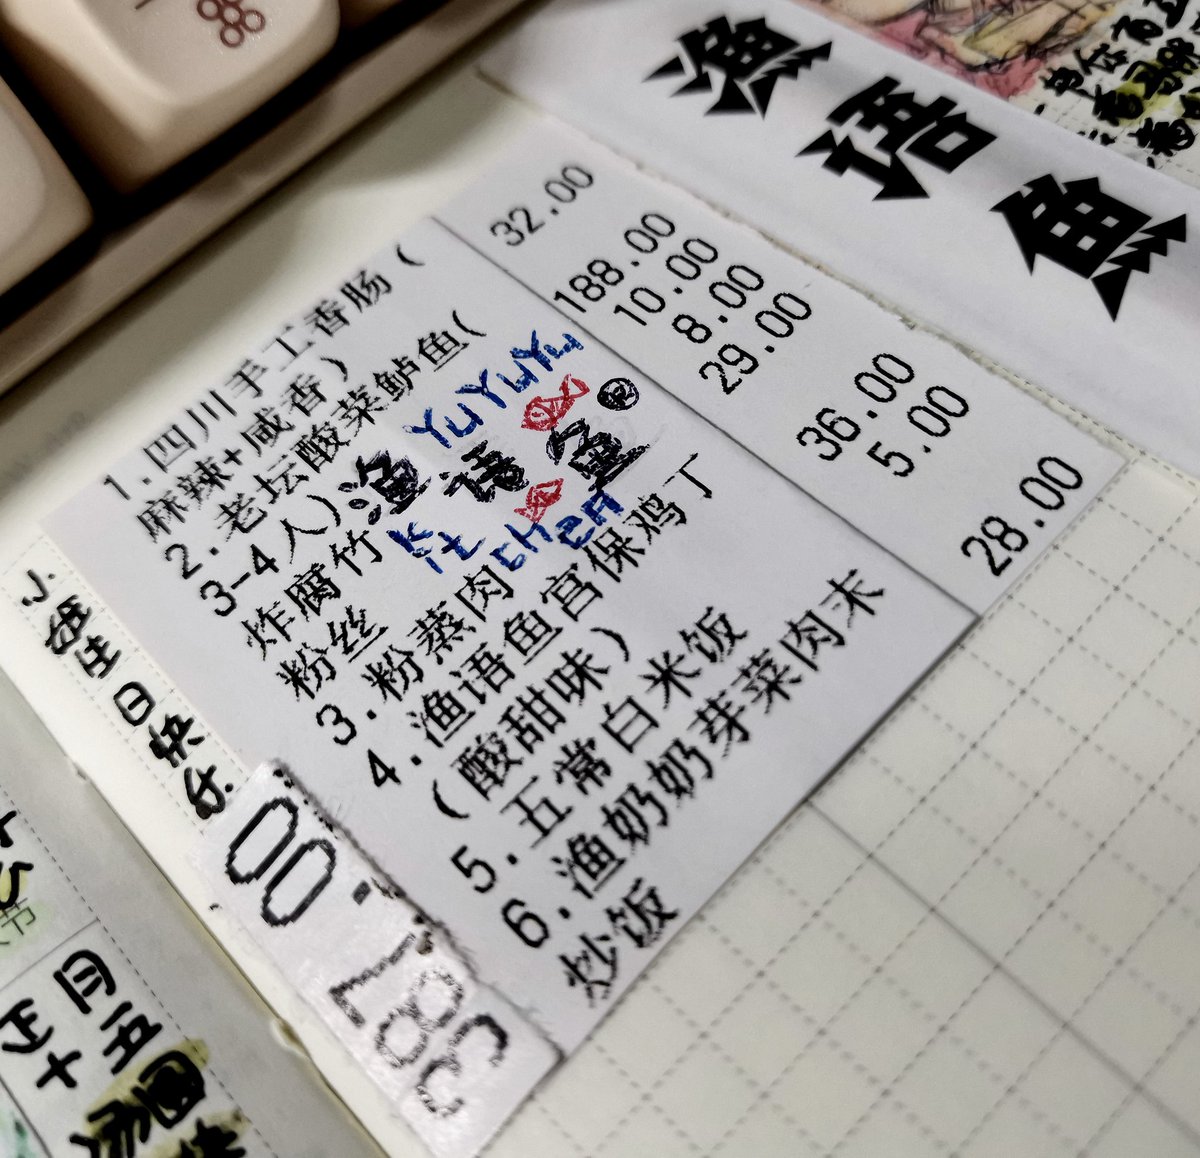 渔语魚
1.四川手工香肠(
麻辣+咸香)
32.00
2.老坛酸菜鲈鱼(
3-4人)
188.00
炸腐竹
10.00
粉丝
8.00
3.粉蒸肉
29.00
4.渔语鱼宫保鸡丁
(酸甜味)
36.00
5.五常白米饭
5.00
6.渔奶奶芽菜肉末
炒饭
28.00
渔语鱼
Kitchen
生日快乐
.00
正月
十五